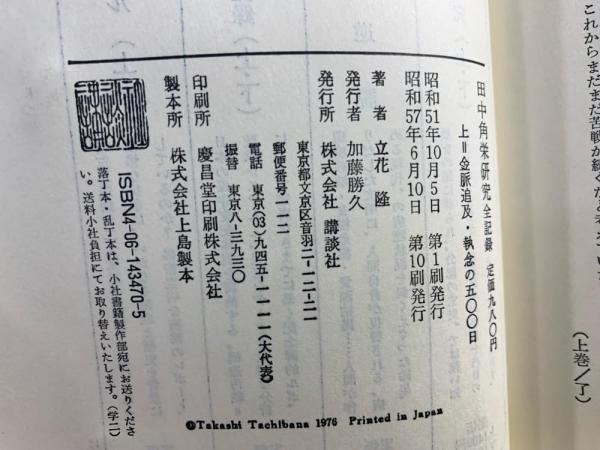 これからまだまだ苦戦が続く
（上巻／了）
田中角栄研究全記録 定価九八〇円
上＝金脈追及・執念の五〇〇日
昭和51年10月5日 第1刷発行
昭和57年6月10日 第10刷発行
著者 立花 隆
発行者 加藤勝久
発行所 株式会社 講談社
東京都文京区音羽二-一二-二一
郵便番号一一二
電話 東京(03)九四五-一一一一(大代表)
振替 東京八-三九三〇
印刷所 慶昌堂印刷株式会社
製本所 株式会社上島製本
ISBN4-06-143470-5
落丁本・乱丁本は、小社書籍製作部宛にお送りくださ
い。送料小社負担にてお取り替えいたします。 (学二)
©Takashi Tachibana 1976 Printed in Japan